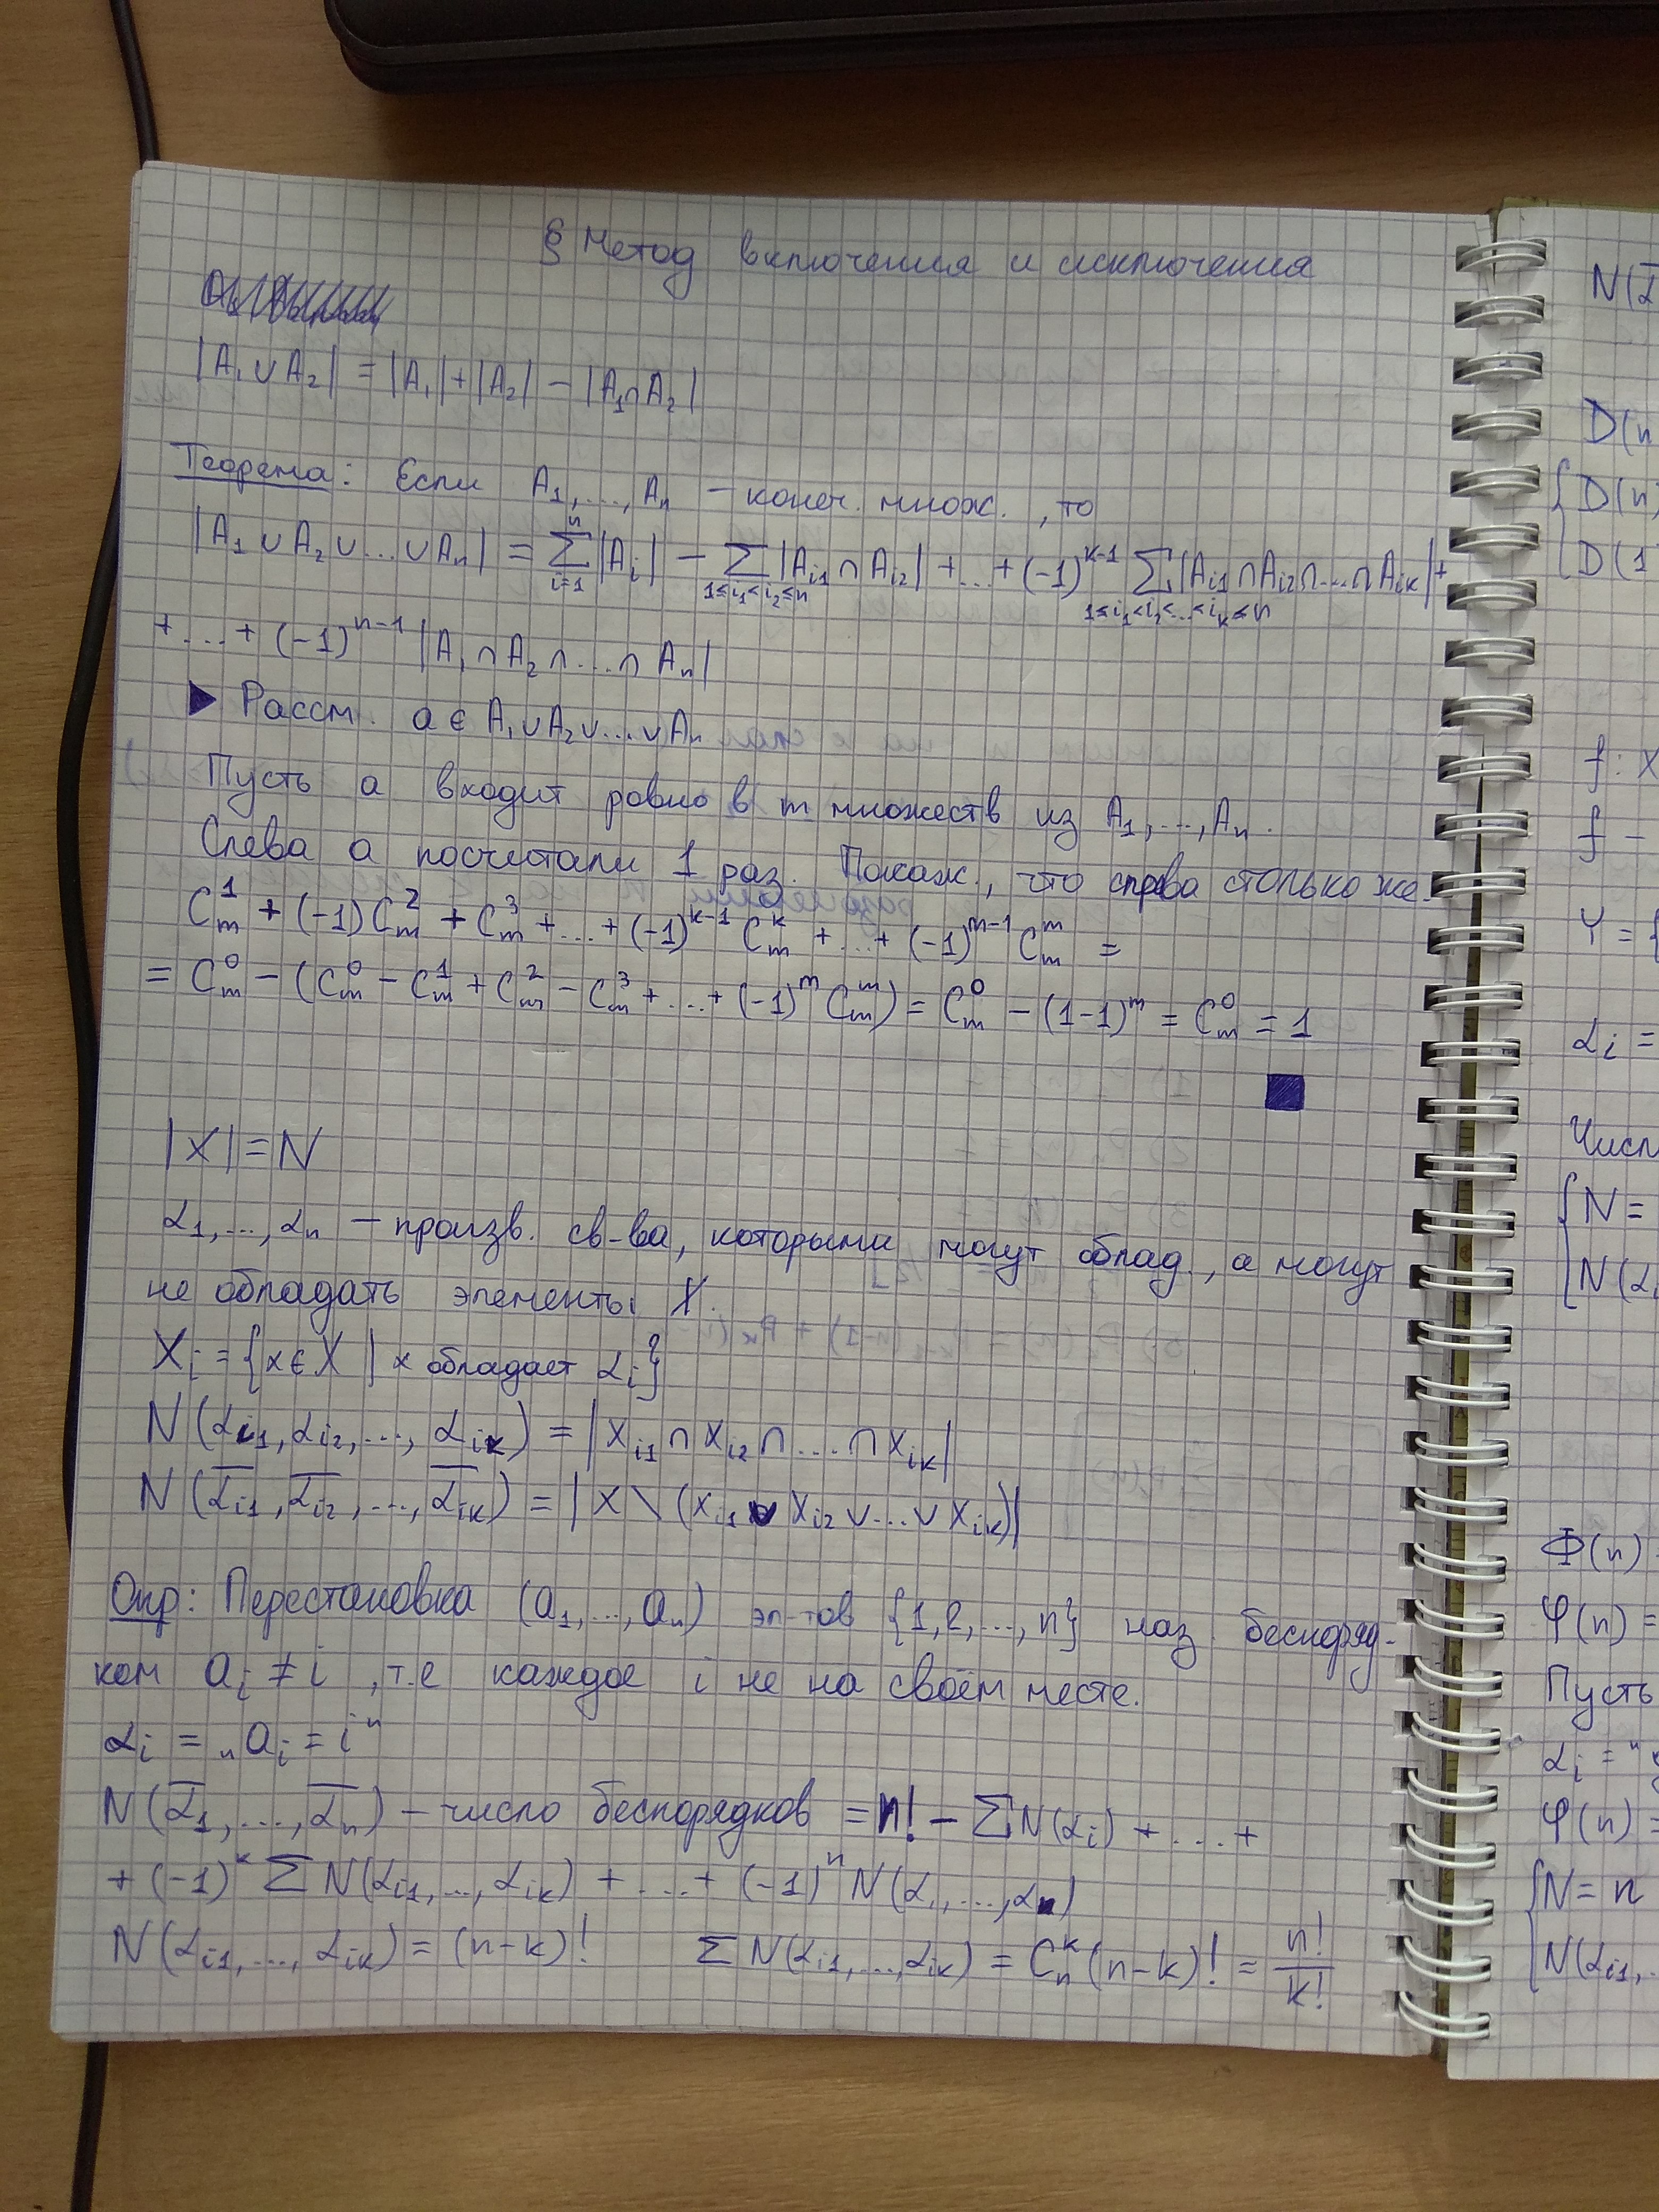 § Метод включения и исключения
|A₁ ∪ A₂| = |A₁| + |A₂| − |A₁ ∩ A₂|
Теорема: Если A₁, ..., Aₙ – конеч. множ., то
|A₁ ∪ A₂ ∪ ... ∪ Aₙ| = ∑_{i=1}^{n} |A_i| − ∑_{1≤i₁<i₂≤n} |A_{i1} ∩ A_{i2}| + ... + (−1)^{k−1} ∑_{1≤i₁<i₂<...<i_k≤n} |A_{i1} ∩ A_{i2} ∩ ... ∩ A_{ik}| +
+ ... + (−1)^{n−1} |A₁ ∩ A₂ ∩ ... ∩ Aₙ|
▶ Рассм. a ∈ A₁ ∪ A₂ ∪ ... ∪ Aₙ
Пусть a входит ровно в m множеств из A₁, ..., Aₙ.
Слева a посчитали 1 раз. Покаж., что справа столько же.
C_m^1 + (−1)C_m^2 + C_m^3 + ... + (−1)^{k−1} C_m^k + ... + (−1)^{m−1} C_m^m =
= C_m^0 − (C_m^0 − C_m^1 + C_m^2 − C_m^3 + ... + (−1)^m C_m^m) = C_m^0 − (1−1)^m = C_m^0 = 1
■
|X| = N
α₁, ..., αₙ – произв. св-ва, которыми могут облад., а могут
не обладать элементы X.
X_i = {x ∈ X | x обладает α_i}
N(α_{i1}, α_{i2}, ..., α_{ik}) = |X_{i1} ∩ X_{i2} ∩ ... ∩ X_{ik}|
N(α̅_{i1}, α̅_{i2}, ..., α̅_{ik}) = |X \ (X_{i1} ∪ X_{i2} ∪ ... ∪ X_{ik})|
Опр: Перестановка (a₁, ..., aₙ) эл-тов {1, 2, ..., n} наз. беспоряд-
ком a_i ≠ i, т.е каждое i не на своём месте.
α_i = „a_i = i"
N(α̅₁, ..., α̅ₙ) – число беспорядков = n! − ∑N(α_i) + ... +
+ (−1)^k ∑ N(α_{i1}, ..., α_{ik}) + ... + (−1)^n N(α₁, ..., αₙ)
N(α_{i1}, ..., α_{ik}) = (n−k)! ∑ N(α_{i1}, ..., α_{ik}) = C_n^k (n−k)! = n!/k!
D(n
D(n)
D(1
f: X
f –
Y = {
α_i =
N =
N(α_i
Φ(n)
φ(n) =
Пусть
α_i = "
φ(n) =
N = n
N(α_{i1}, .